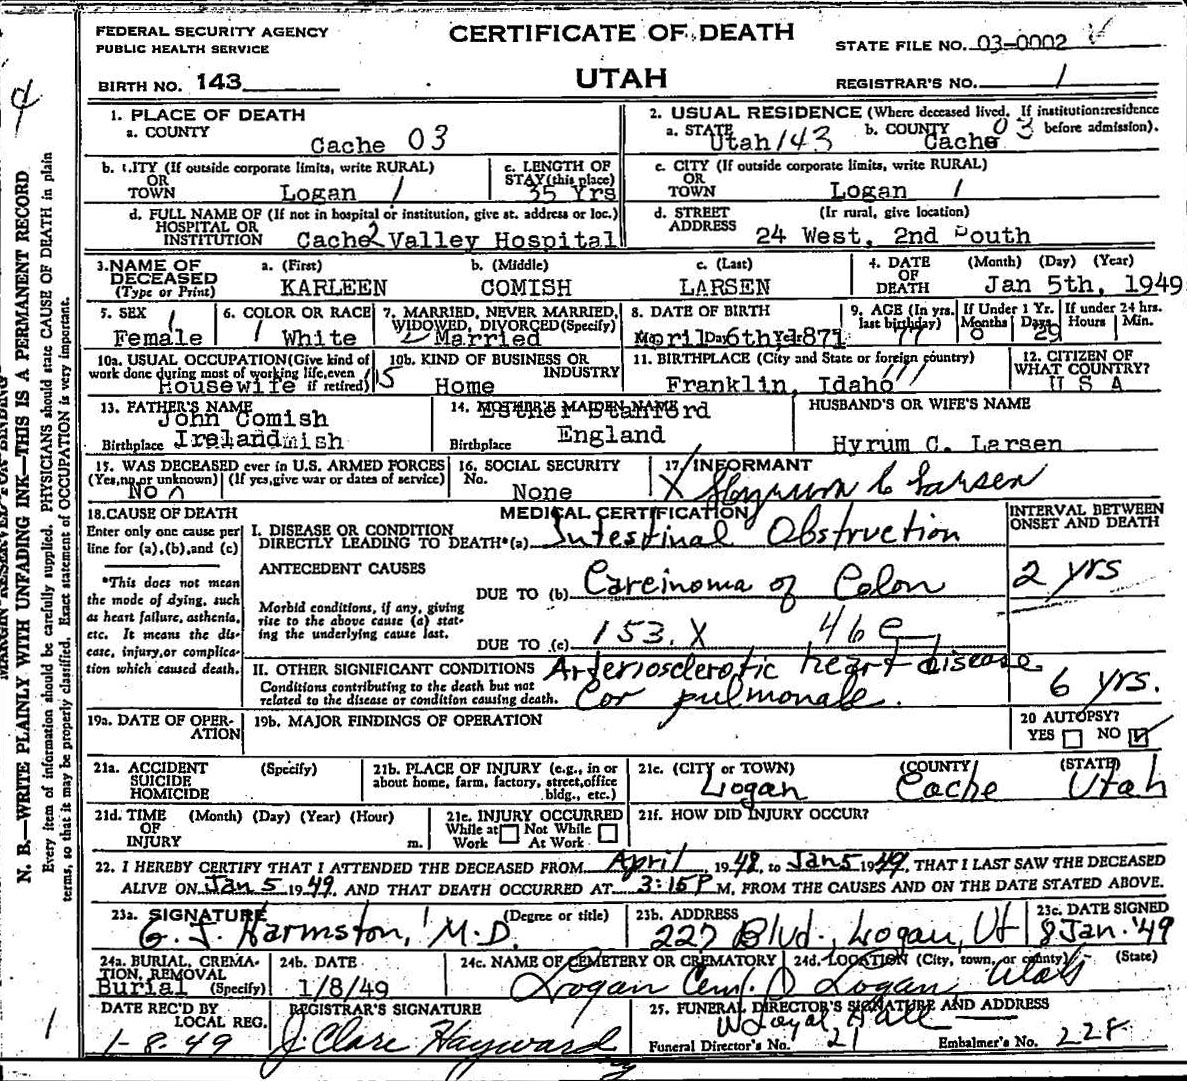 FEDERAL SECURITY AGENCY
PUBLIC HEALTH SERVICE
CERTIFICATE OF DEATH
STATE FILE NO. 03-0002
BIRTH NO. 143
UTAH
REGISTRAR'S NO. 1
1. PLACE OF DEATH
a. COUNTY
Cache 03
2. USUAL RESIDENCE (Where deceased lived. If institution:residence before admission).
a. STATE Utah 143 b. COUNTY Cache 03
b. CITY (If outside corporate limits, write RURAL)
OR
TOWN Logan 1
c. LENGTH OF
STAY (this place)
35 Yrs
c. CITY (If outside corporate limits, write RURAL)
OR
TOWN Logan 1
d. FULL NAME OF (If not in hospital or institution, give st. address or loc.)
HOSPITAL OR
INSTITUTION Cache 2 Valley Hospital
d. STREET (Ir rural, give location)
ADDRESS 24 West, 2nd South
3. NAME OF DECEASED
(Type or Print)
a. (First) b. (Middle) c. (Last)
KARLEEN COMISH LARSEN
4. DATE OF DEATH (Month) (Day) (Year)
Jan 5th, 1949
5. SEX 1
Female
6. COLOR OR RACE
1 White
7. MARRIED, NEVER MARRIED,
WIDOWED, DIVORCED (Specify)
2 Married
8. DATE OF BIRTH
April 6th 1871
9. AGE (In yrs. last birthday)
77
If Under 1 Yr. Months Days
8 29
If under 24 hrs. Hours Min.
10a. USUAL OCCUPATION (Give kind of
work done during most of working life, even
if retired)
Housewife
10b. KIND OF BUSINESS OR
INDUSTRY
Home
11. BIRTHPLACE (City and State or foreign country)
Franklin, Idaho
12. CITIZEN OF
WHAT COUNTRY?
U S A
13. FATHER'S NAME
John Comish
Birthplace Ireland
14. MOTHER'S MAIDEN NAME
Esther Stanford
Birthplace England
HUSBAND'S OR WIFE'S NAME
Hyrum C. Larsen
15. WAS DECEASED ever in U.S. ARMED FORCES
(Yes, no, or unknown) (If yes, give war or dates of service)
No
16. SOCIAL SECURITY
No.
None
17. INFORMANT
X Hyrum C Larsen
18. CAUSE OF DEATH
Enter only one cause per
line for (a), (b), and (c)
*This does not mean
the mode of dying, such
as heart failure, asthenia,
etc. It means the dis-
ease, injury, or complica-
tion which caused death.
MEDICAL CERTIFICATION
INTERVAL BETWEEN
ONSET AND DEATH
I. DISEASE OR CONDITION
DIRECTLY LEADING TO DEATH*(a) Intestinal Obstruction
ANTECEDENT CAUSES
DUE TO (b) Carcinoma of Colon 2 yrs
Morbid conditions, if any, giving
rise to the above cause (a) stat-
ing the underlying cause last.
DUE TO (c) 153. X 46 e
II. OTHER SIGNIFICANT CONDITIONS Arteriosclerotic heart disease
Conditions contributing to the death but not
related to the disease or condition causing death. Cor pulmonale. 6 yrs.
19a. DATE OF OPER-
ATION
19b. MAJOR FINDINGS OF OPERATION
20 AUTOPSY?
YES NO
21a. ACCIDENT (Specify)
SUICIDE
HOMICIDE
21b. PLACE OF INJURY (e.g., in or
about home, farm, factory, street, office
bldg., etc.)
21c. (CITY or TOWN) (COUNTY) (STATE)
Logan Cache Utah
21d. TIME (Month) (Day) (Year) (Hour)
OF
INJURY m.
21e. INJURY OCCURRED
While at Work Not While At Work
21f. HOW DID INJURY OCCUR?
22. I HEREBY CERTIFY THAT I ATTENDED THE DECEASED FROM April 1948, to Jan 5 1949, THAT I LAST SAW THE DECEASED
ALIVE ON Jan 5 1949, AND THAT DEATH OCCURRED AT 3:15 P M, FROM THE CAUSES AND ON THE DATE STATED ABOVE.
23a. SIGNATURE (Degree or title)
G. J. Harmston, M.D.
23b. ADDRESS
227 Blvd., Logan, Ut
23c. DATE SIGNED
8 Jan. '49
24a. BURIAL, CREMA-
TION, REMOVAL
Burial (Specify)
24b. DATE
1/8/49
24c. NAME OF CEMETERY OR CREMATORY
Logan Cem.
24d. LOCATION (City, town, or county) (State)
Logan Utah
DATE REC'D BY
LOCAL REG.
1-8-49
REGISTRAR'S SIGNATURE
J. Clare Hayward
25. FUNERAL DIRECTOR'S SIGNATURE AND ADDRESS
W Loyal Hall
Funeral Director's No. 21 Embalmer's No. 228
MARGIN RESERVED FOR BINDING
N. B.—WRITE PLAINLY WITH UNFADING INK—THIS IS A PERMANENT RECORD
Every item of information should be carefully supplied. PHYSICIANS should state CAUSE OF DEATH in plain
terms, so that it may be properly classified. Exact statement of OCCUPATION is very important.